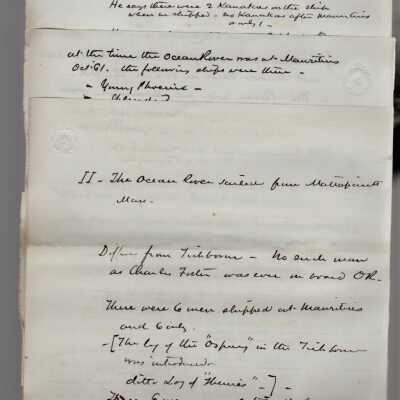 He says there were 2 Kanakas on the ship
when he shipped - no Kanakas after Mauritius
only 1 -
at the time the Ocean Rover was at Mauritius
Oct 61. the following ships were there -
- Young Phoenix -
II - The Ocean Rover sailed from Mattapoisett
Mass -
Differs from Tichborne - No such man
as Charles Foster was ever on board OR -
There were 6 men shipped at Mauritius
and 6 only.
- [The log of the "Osprey" in the Tichborne
was introduced
ditto Log of "Themis" - ] -
6 men